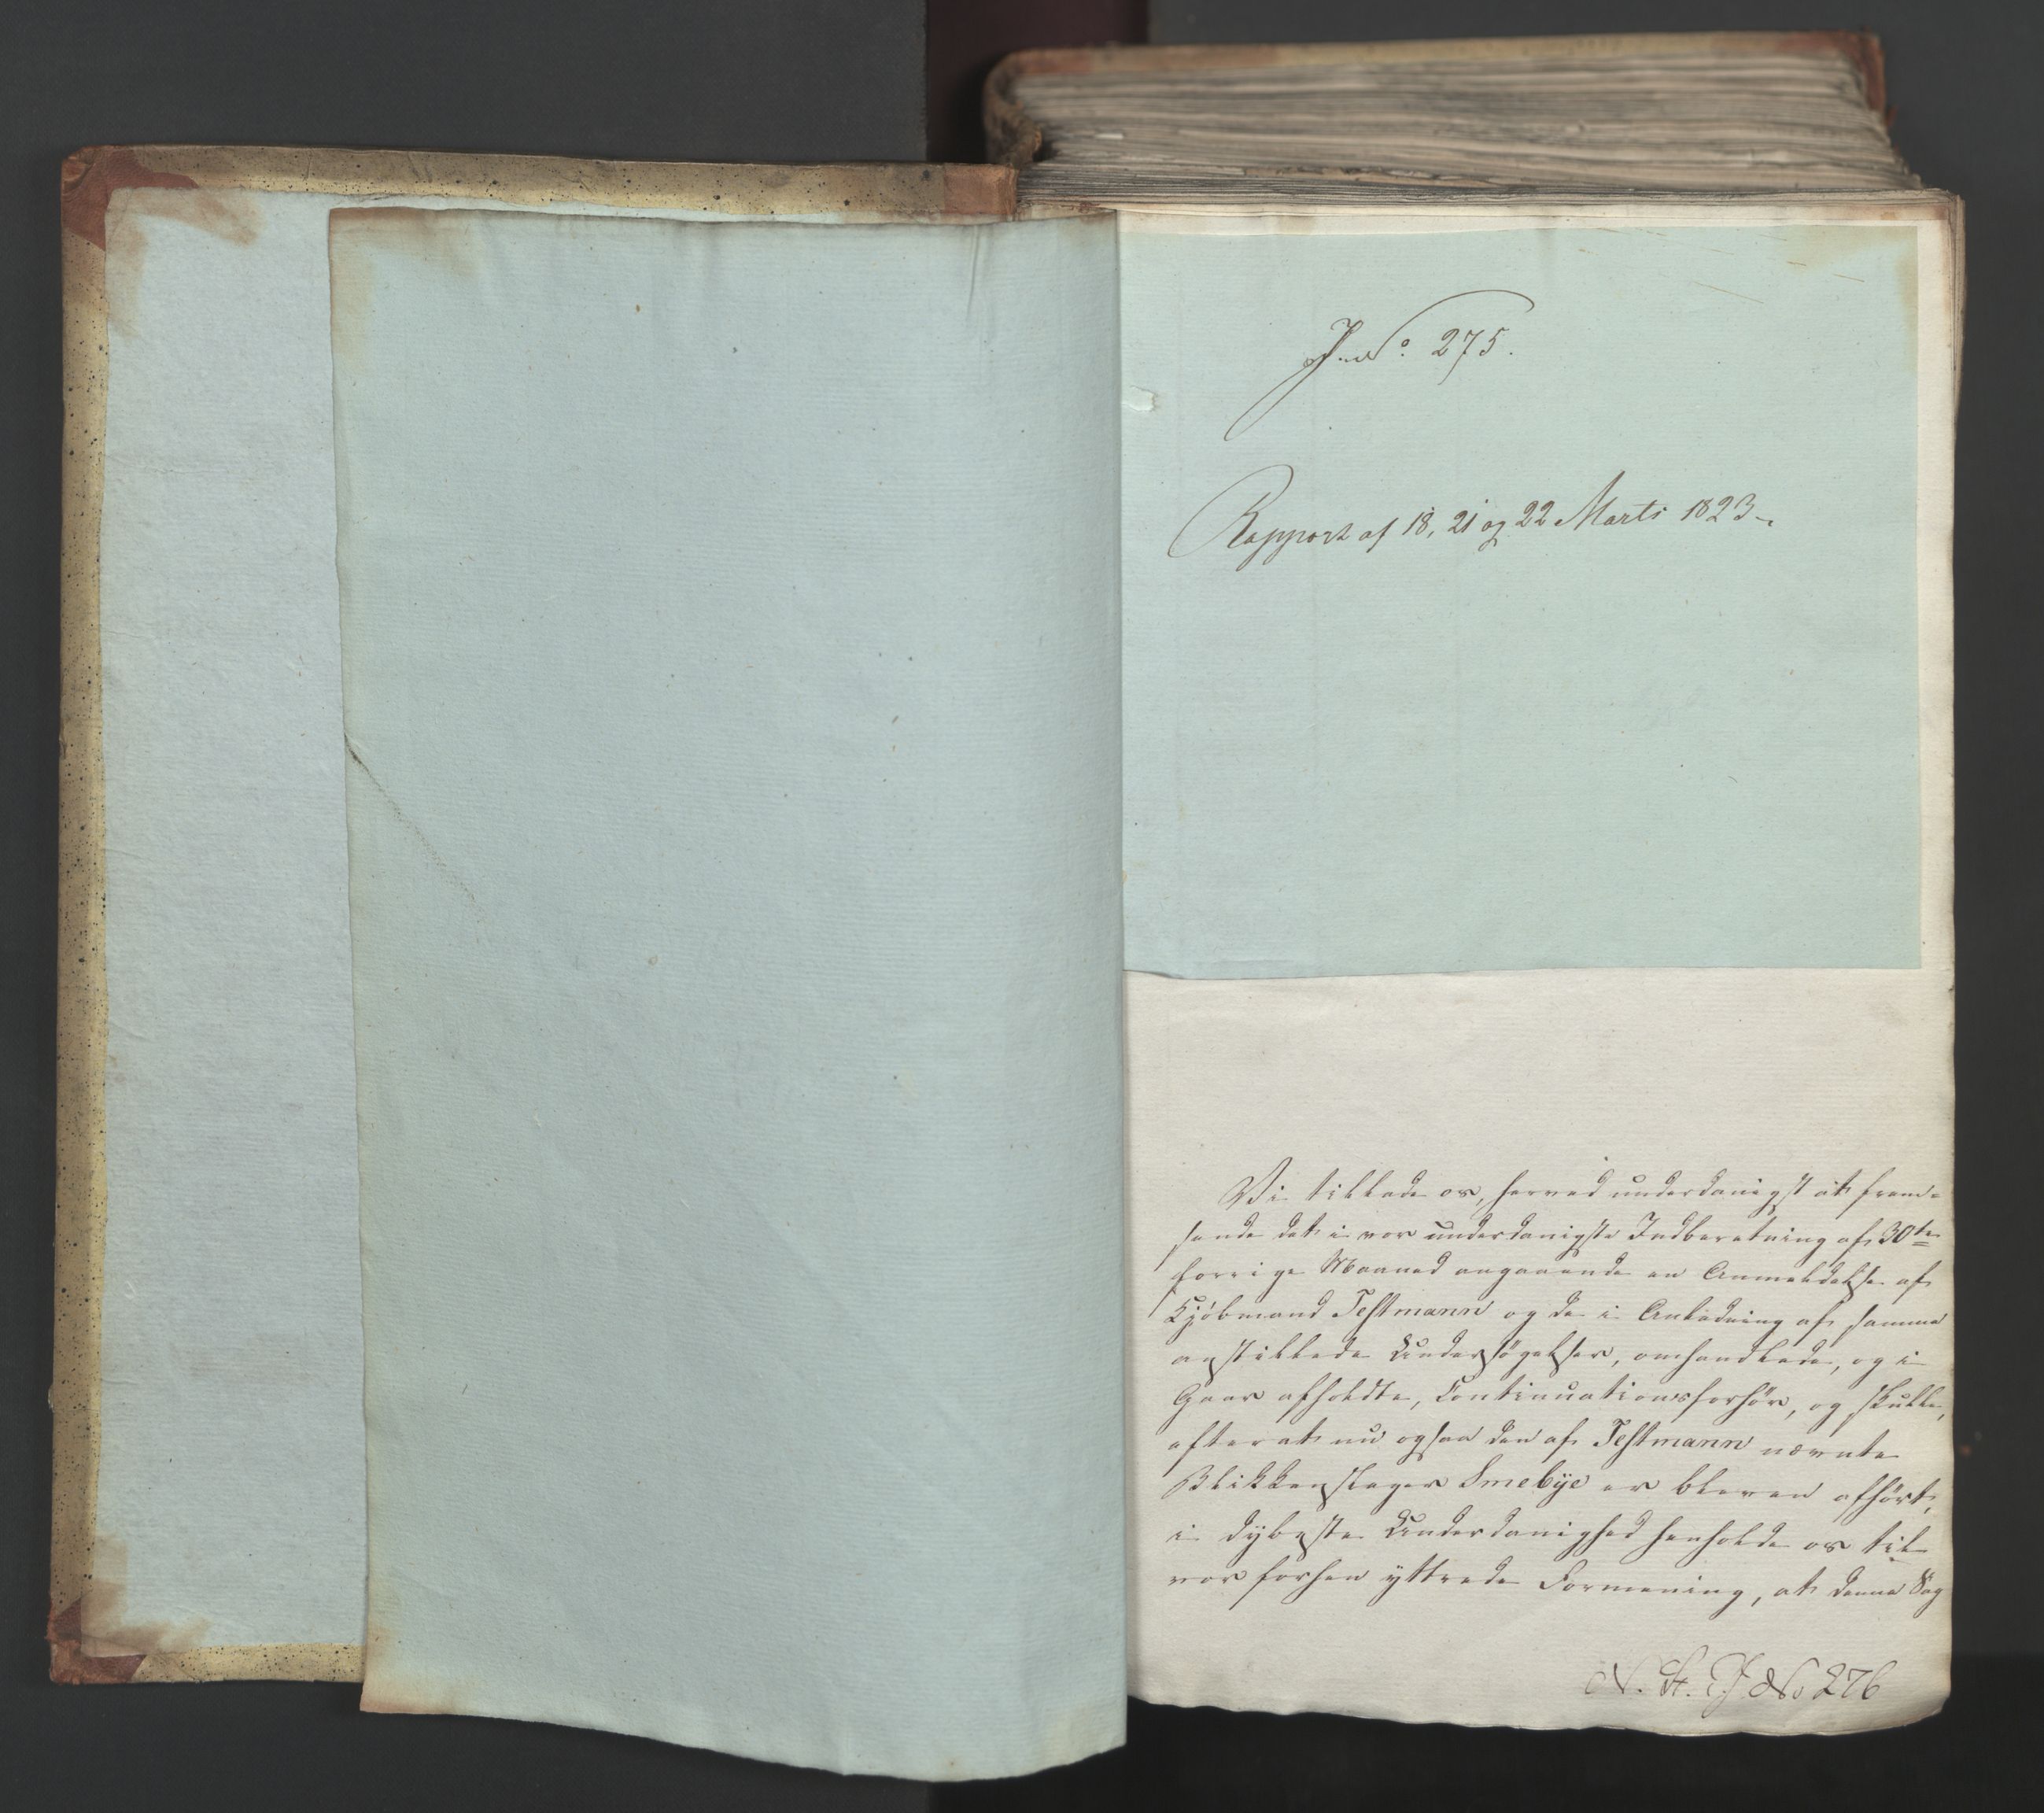 J. No. 275.
Rapport af 18, 21 og 22 Marts 1823.
Vi tillade os, herved underdanigst at frem-
sende det i vor underdanigste Indberetning af 30te
forrige Maaned angaaende en Anmeldelse af
Kjöbmand Testmann og de i Anledning af samme
anstillede Undersøgelser, omhandlede, og i
Gaar afholdte, Continuationsforhør, og skulle,
efterat nu ogsaa den af Testmann nævnte
Blikkenslager Smebye er bleven afhört,
i dybeste Underdanighed henholde os til
vor forhen yttrede Formening, at denne Sag
N. St. J No 276